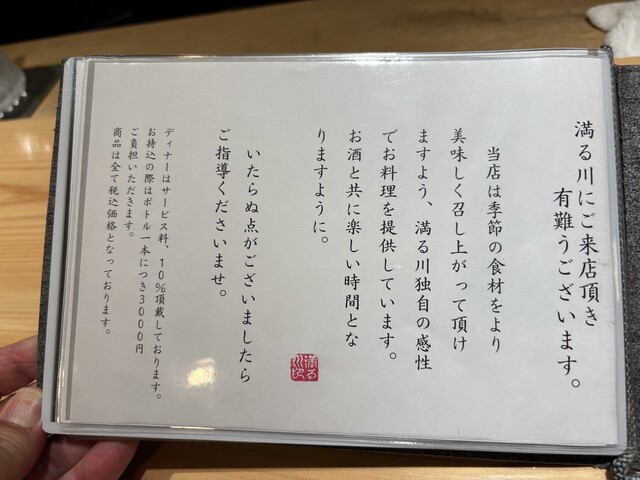 満る川にご来店頂き
有難うございます。
当店は季節の食材をより
美味しく召し上がって頂け
ますよう、満る川独自の感性
でお料理を提供しています。
お酒と共に楽しい時間とな
りますように。
いたらぬ点がございましたら
ご指導くださいませ。
ディナーはサービス料、10%頂戴しております。
お持込の際はボトル一本につき3000円
ご負担いただきます。
商品は全て税込価格となっております。